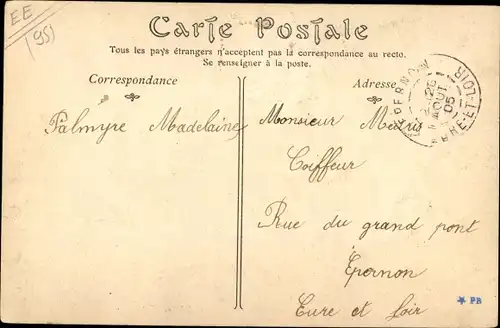 EE
951
Carte Postale
Tous les pays étrangers n'acceptent pas la correspondance au recto.
Se renseigner à la poste.
Correspondance
Adresse
EPERNON
26
AOUT
05
EURE-ET-LOIR
Palmyre Madelaine
Monsieur
Coiffeur
Rue du grand pont
Epernon
Eure et Loir
PB